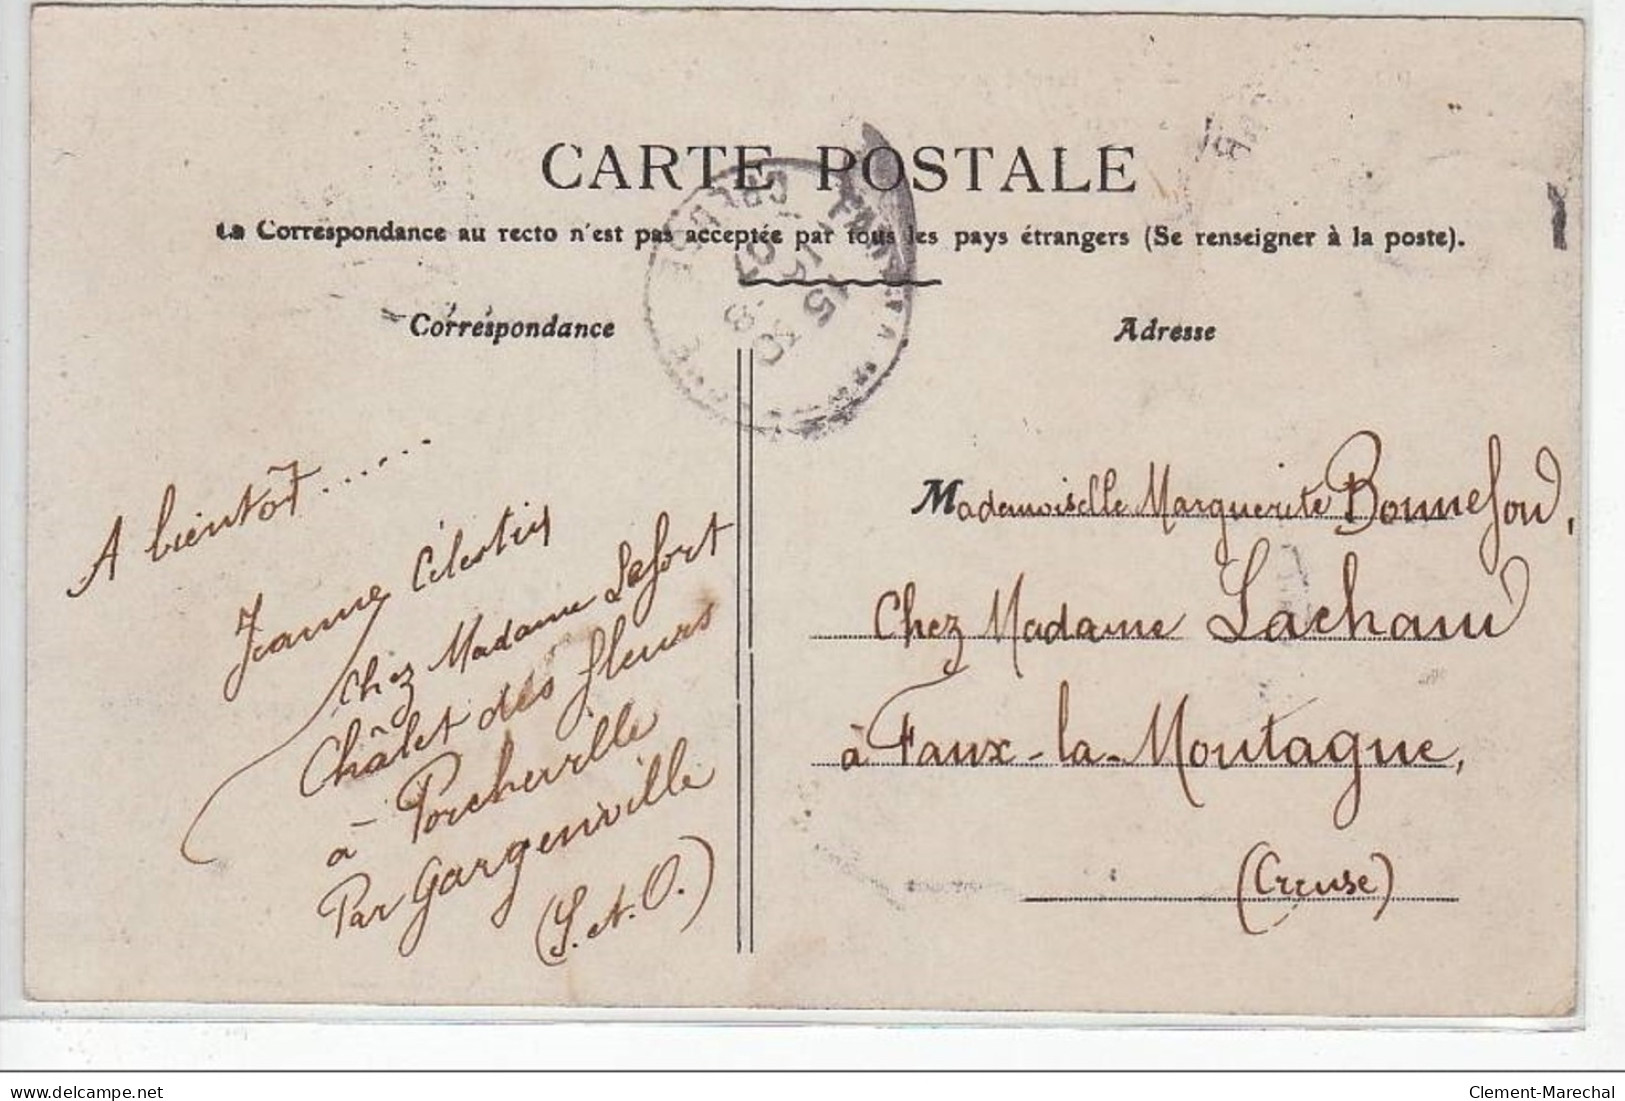 CARTE POSTALE
La Correspondance au recto n'est pas acceptée par tous les pays étrangers (Se renseigner à la poste).
Correspondance
Adresse
A bientôt.......
Jeanne Célestin
Chez Madame Lafort
Châlet des fleurs
à Porcheville
Par Gargenville
(S. et. O.)
Mademoiselle Marguerite Bonnefond,
Chez Madame Lachaud
à Faux-la-Montagne,
(Creuse)
CREUSE
15 30
delcampe.net
Clement-Marechal